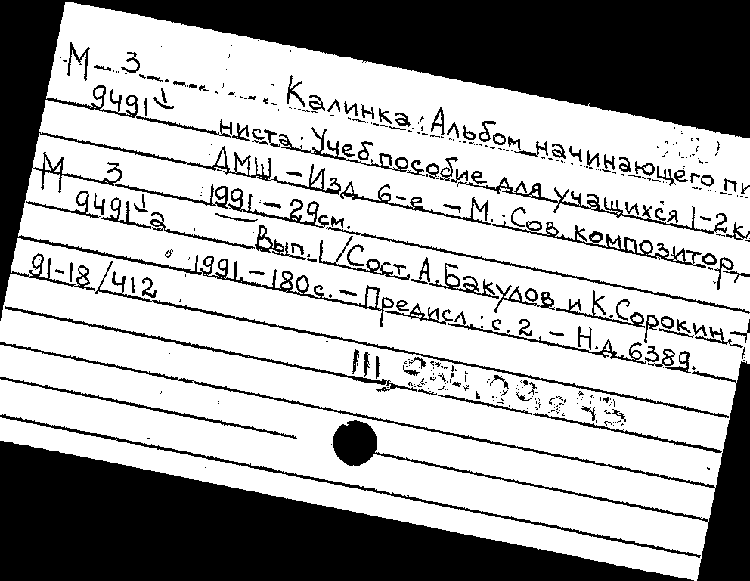 М 3
9491
Калинка: Альбом начинающего пи
ниста: Учеб. пособие для учащихся 1-2 кл
ДМШ. – Изд. 6-е. – М.: Сов. композитор,
1991. – 29 см.
М 3
9491 а
Вып. 1 / Сост. А. Бакулов и К. Сорокин. –
1991. – 180 с. – Предисл.: с. 2. – Н.д. 6389.
91-18/412
III